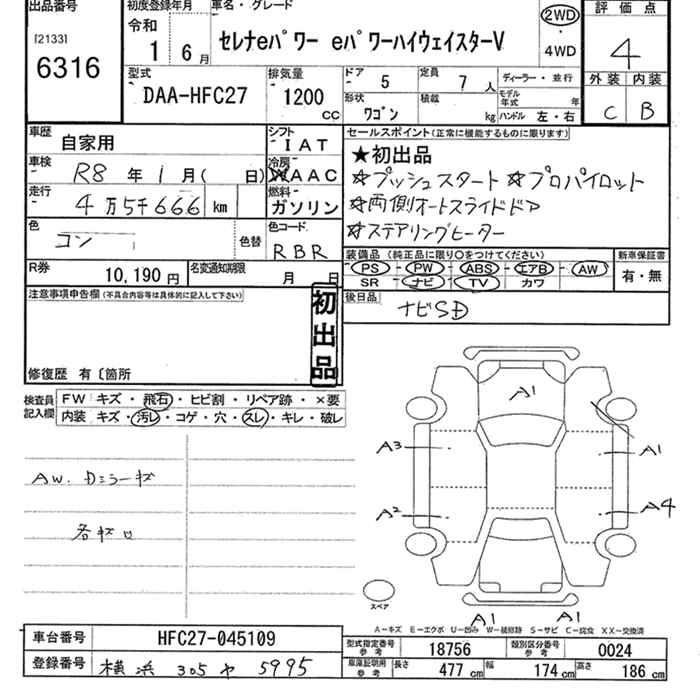 出品番号
[2133]
6316
初度登録年月
令和
1 6月
車名・グレード
セレナeパワー eパワーハイウェイスターV
2WD
・
4WD
評価点
4
外装 内装
C B
型式
DAA-HFC27
排気量
1200
cc
ドア 5
定員 7人
形状
ワゴン
積載
kg
ディーラー・並行
モデル年式 年
ハンドル 左・右
車歴
自家用
シフト
IAT
車検
R8年1月( 日)
冷房
AAC
走行
4万5千666km
燃料
ガソリン
色
コン
色替
色コード
RBR
R券
10,190円
名変通知期限
月 日
セールスポイント(正常に機能するものに限ります)
★初出品
☆プッシュスタート ☆プロパイロット
☆両側オートスライドドア
☆ステアリングヒーター
装備品(純正品に限り○をつけてください)
PS - PW - ABS - エアB - AW -
SR - ナビ - TV - カワ
新車保証書
有・無
後日品
ナビSD
注意事項申告欄(不具合内容等は具体的に記入して下さい)
初出品
修復歴 有〔箇所
検査員記入欄
FW キズ・飛石・ヒビ割・リペア跡・×要
内装 キズ・汚レ・コゲ・穴・スレ・キレ・破レ
AW. Dミラーキズ
各キズ凹
A1
A3
A1
A2
A4
A1
A1
スペア
A-キズ E-エクボ U-凹み W-補修跡 S-サビ C-腐食 XX-交換済
車台番号
HFC27-045109
登録番号
横浜 305 や 5995
型式指定番号
参考
18756
類別区分番号
参考
0024
車庫証明用
参考
長さ 477cm
幅 174cm
高さ 186cm